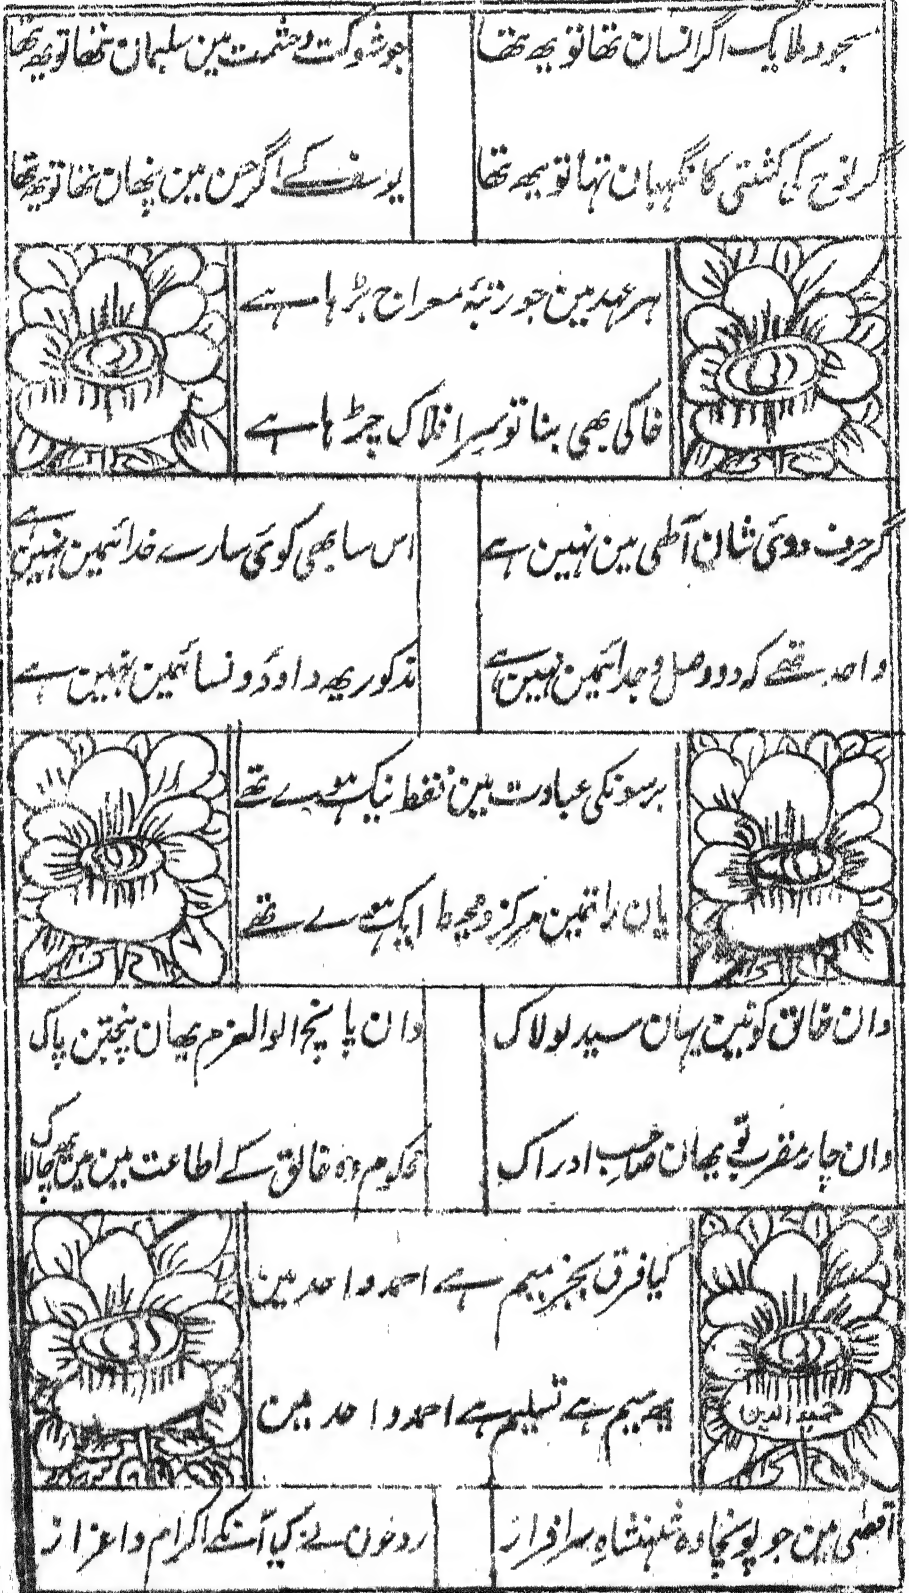 مسجود ملایک اگر انسان تھا تو یہ تھا
جو شوکت و حشمت مین سلیمان تھا تو یہ تھا
گر نوح کی کشتی کا نگہبان تہا تو یہہ تھا
یوسف کے اگر حسن مین پنھان تھا تو یہ تھا
ہر عہد مین جو رتبۂ معراج بڑہا ہے
خاکی بھی بنا تو سرِ افلاک چڑہا ہے
گر حرف دوئی شان آلھی مین نہین ہے
اس سا بھی کوئی سارے خدائیمین نہین ہے
واحد تھے کہ دو وصل و جدائیمین نہین ہے
مذکور یہ داوٗد و نسائیمین نہین ہے
برسونکی عبادت مین فقط نیک ہوے تھے
یان راتمین مرکز و محیط ایک ہوے تھے
وان خالق کونین یہان سید لولاک
وان پانچ اولوالعزم یھان پنجتن پاک
وان چار مقرب تو یھان صاحب ادراک
محکوم وہ خالق کے اطاعت مین یہ چالاک
کیا فرق بجز میم ہے احمد و احد مین
یہ میم ہے تسلیم ہے احمد و احد مین
حمید الدین
اقصٰی مین جو پونچا وہ شہنشاہِ سرافراز
روحون نے کیا آنکے اکرام و اعزاز